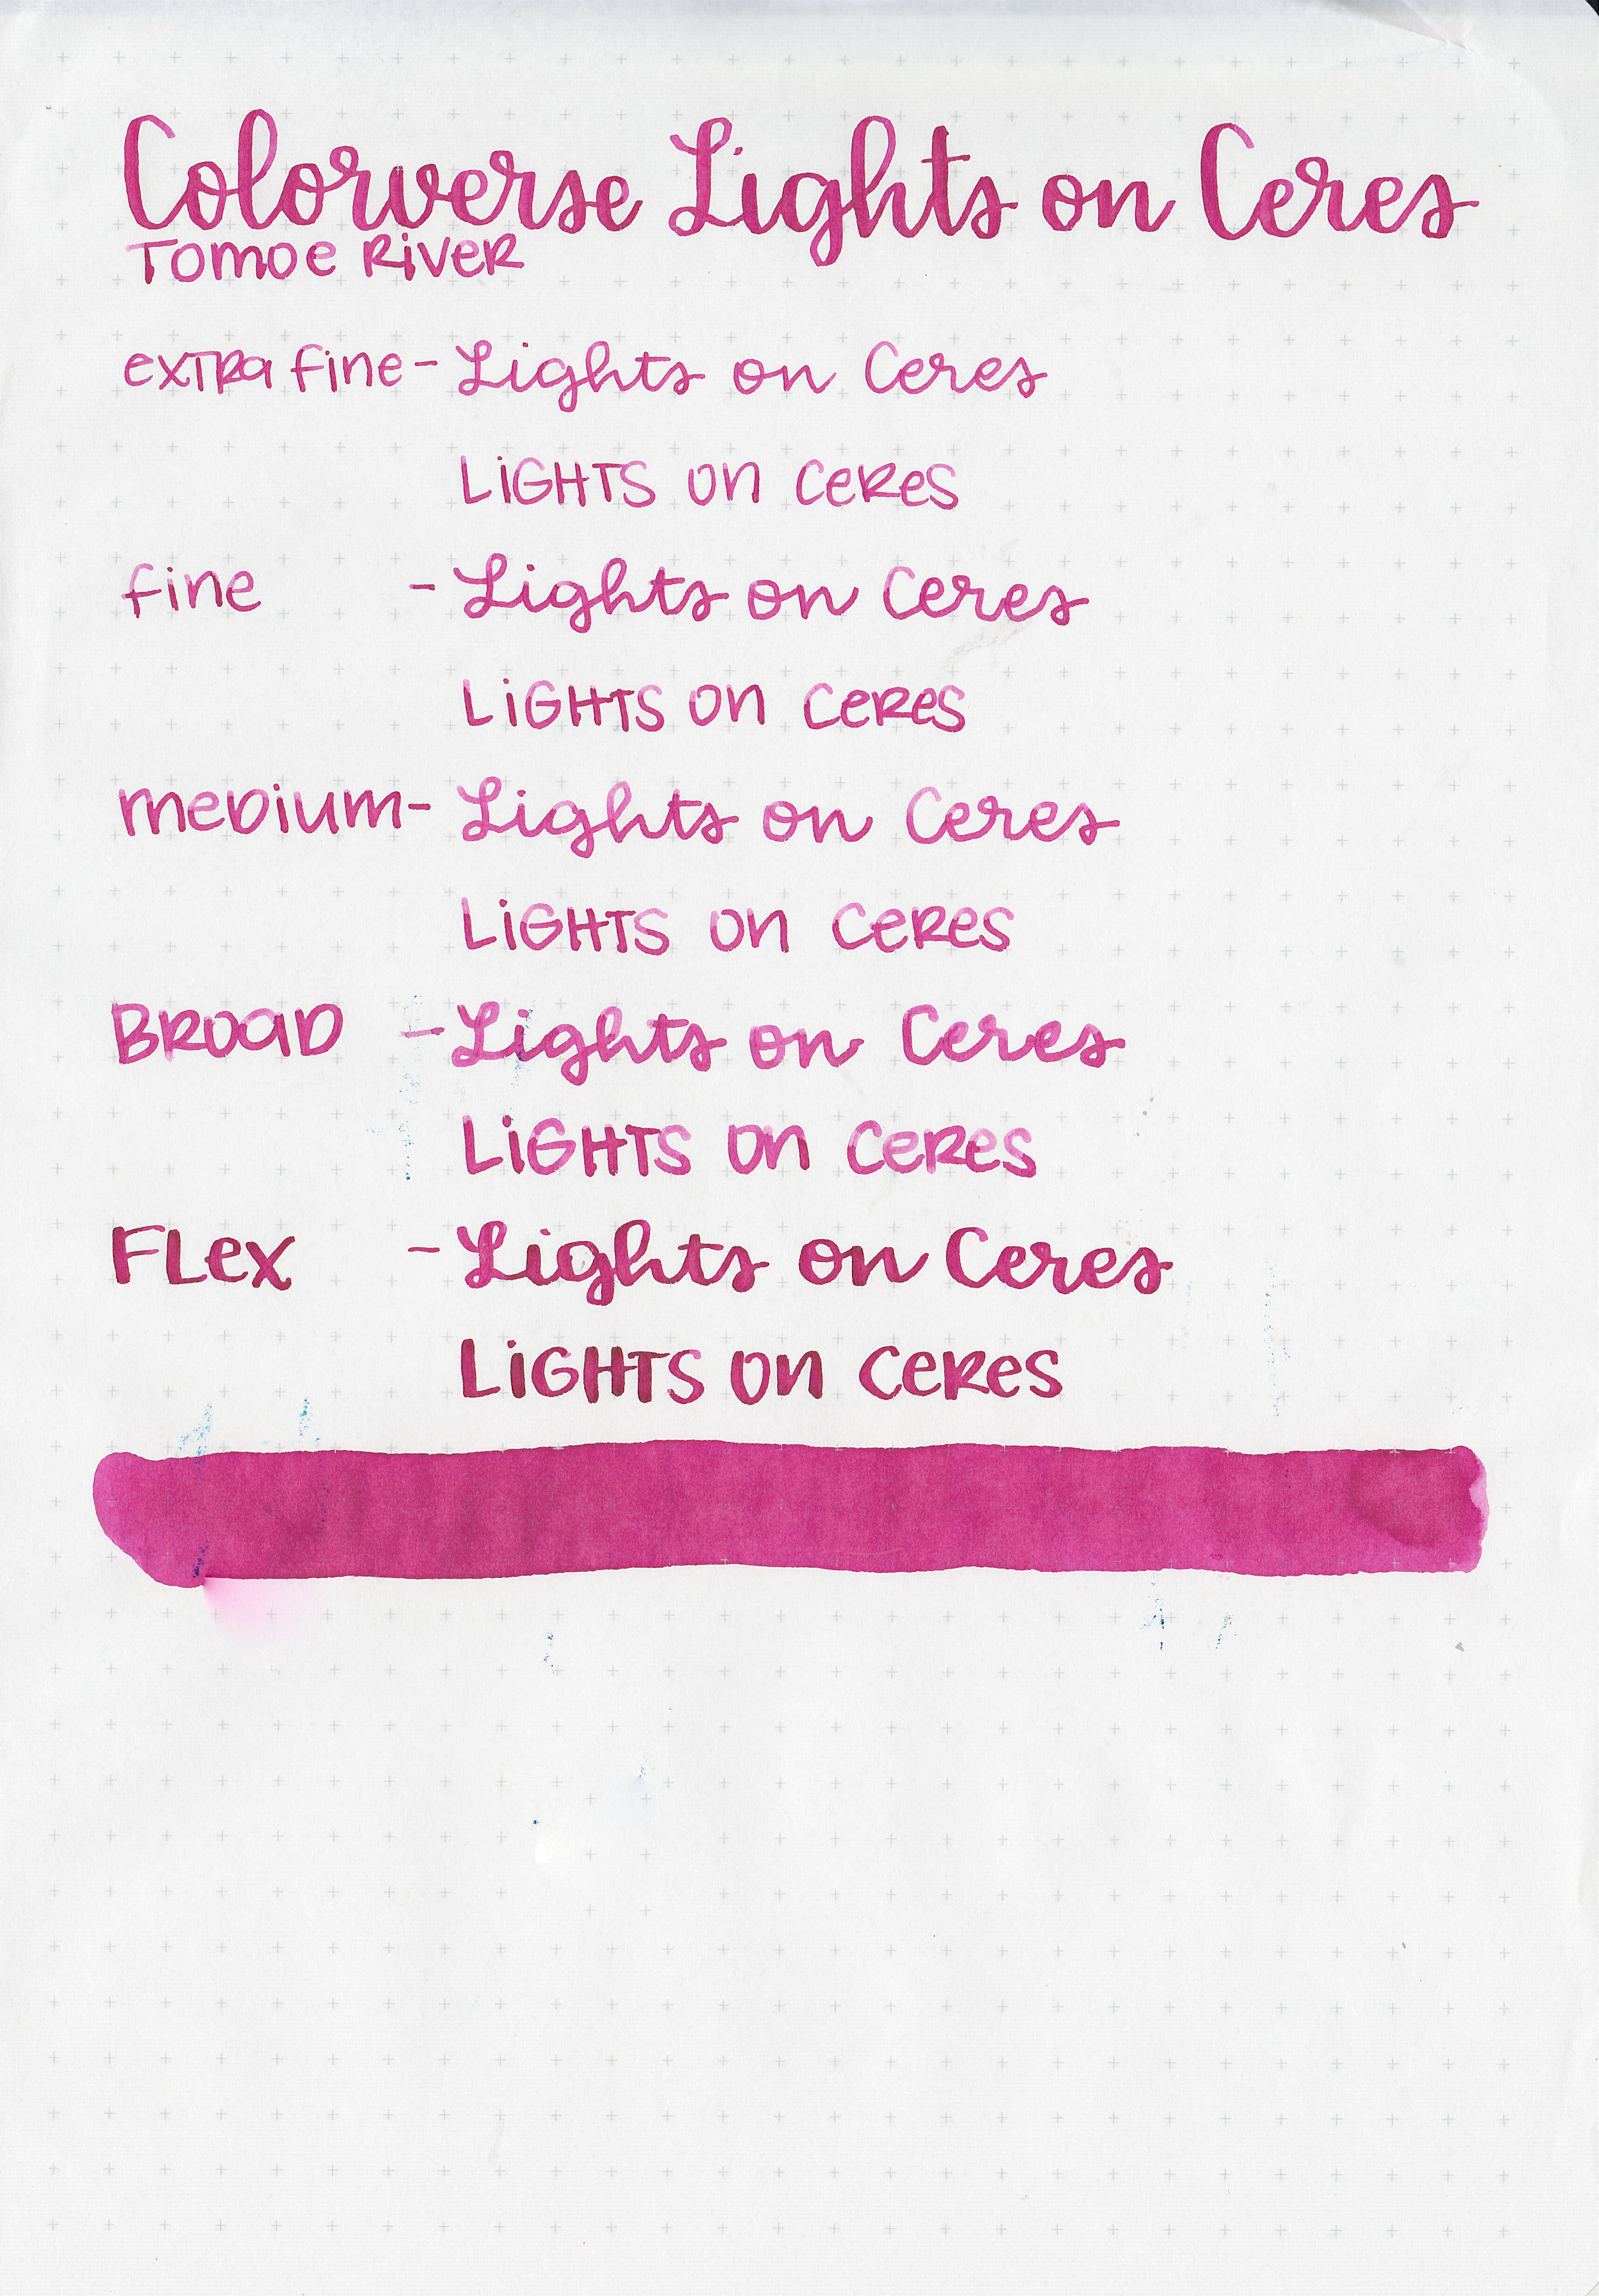 Colorverse Lights on Ceres
Tomoe River
extra fine - Lights on Ceres
LiGHTS on CeReS
fine - Lights on Ceres
LiGHTS on CeReS
meDium - Lights on Ceres
LiGHTS on CeReS
BROaD - Lights on Ceres
LiGHTS on CeReS
FLex - Lights on Ceres
LiGHTS on CeReS